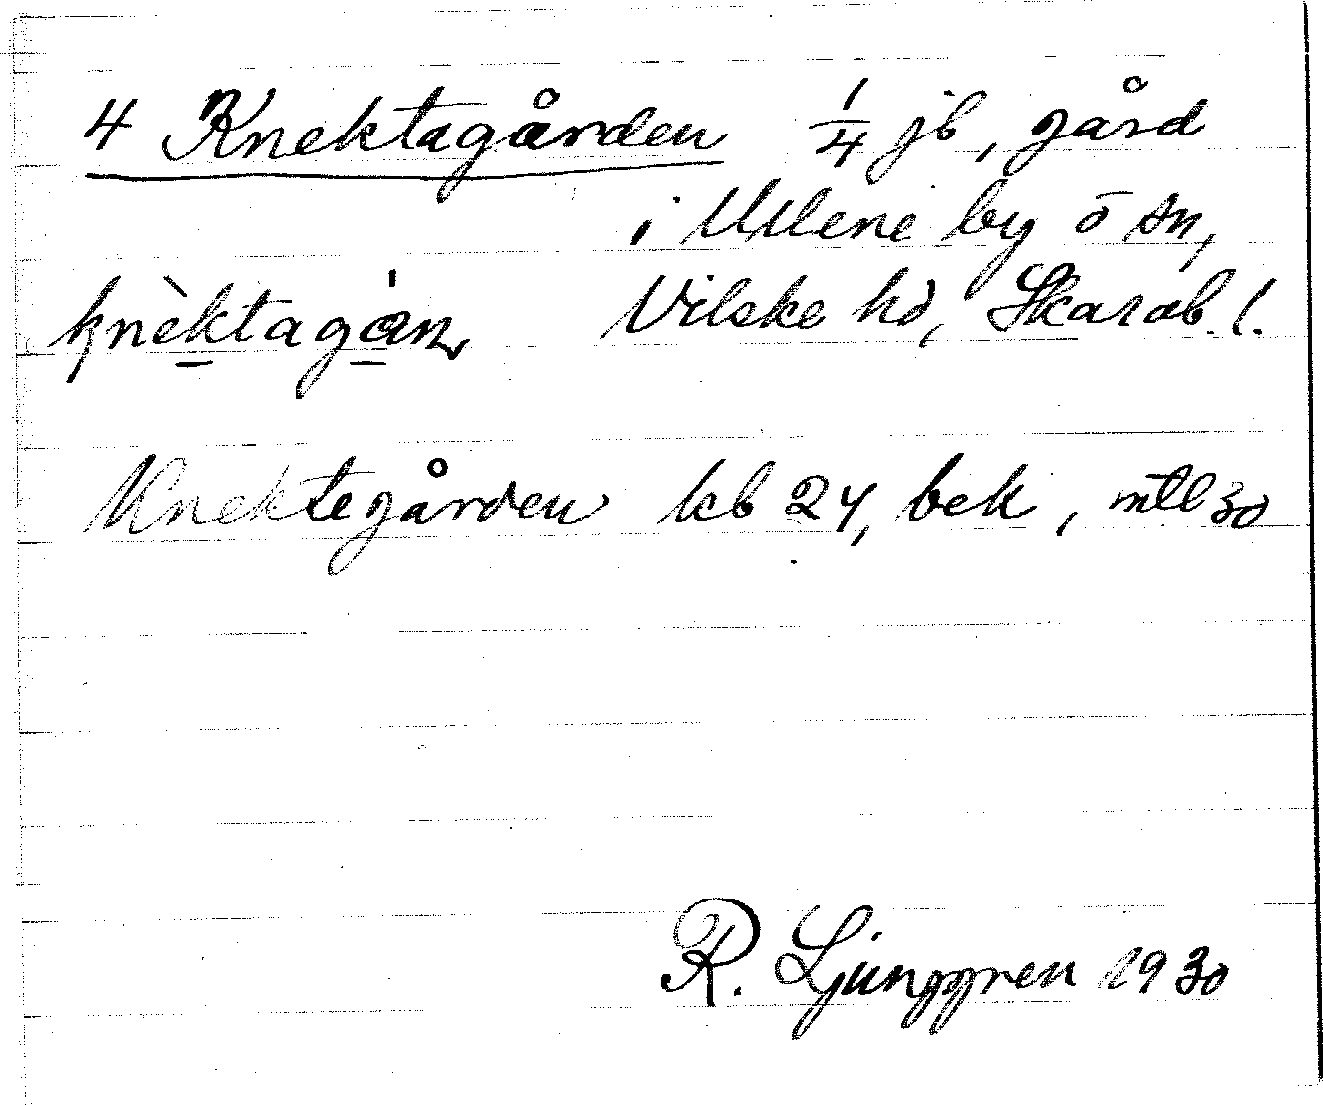 4 Knektagården 1/4 jb, gård
i Ullene by o sn,
knèktagán, Vilske hd, Skarab. l.
Knektegården kb 24, bek, mtl 30
R. Ljunggren 1930